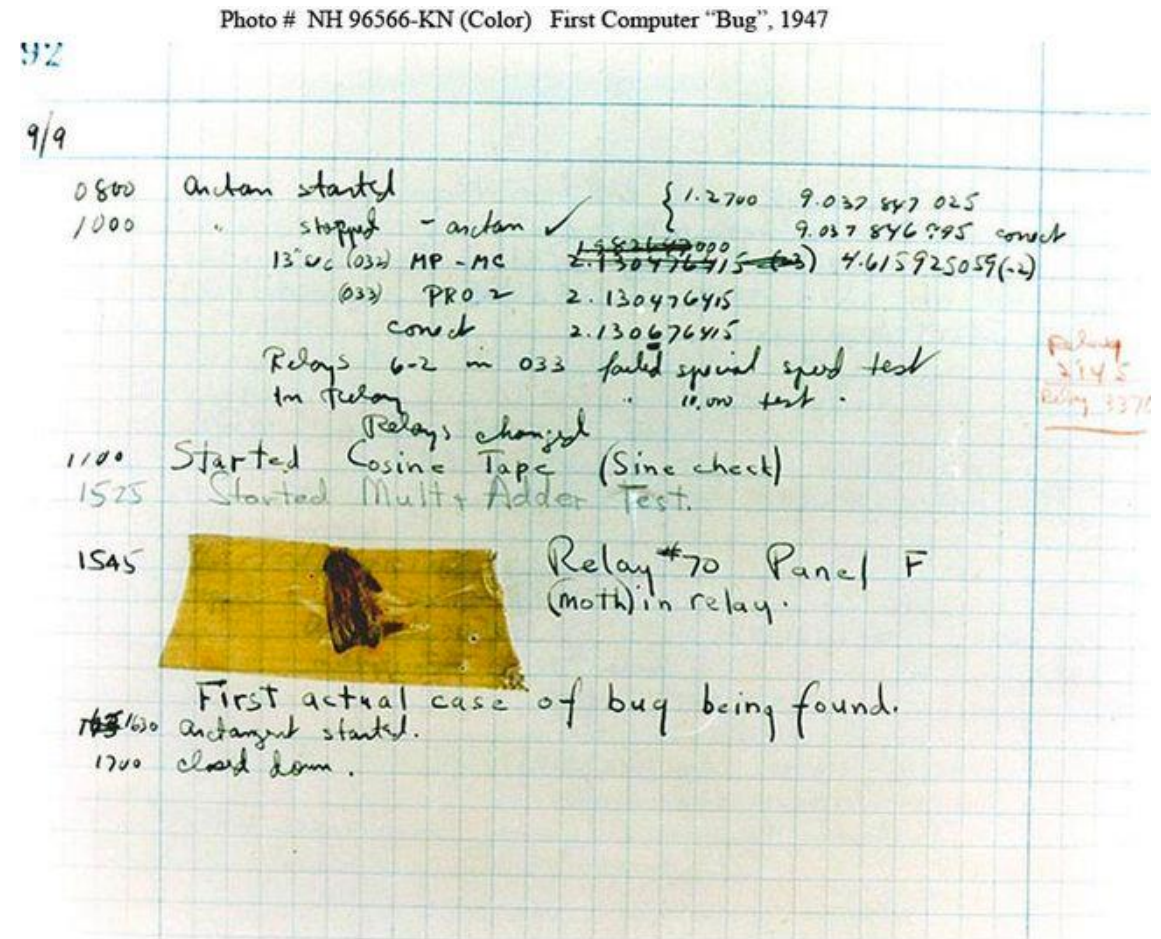 Photo # NH 96566-KN (Color) First Computer “Bug”, 1947
92
9/9
0800 Antan started { 1.2700 9.037 847 025
1000 " stopped - antan ✓ 9.037 846 995 conect
13"uc (032) MP - MC 2.130476415 (-3) 4.615925059(-2)
(033) PRO 2 2.130476415
conect 2.130676415
Relays 6-2 in 033 failed special speed test
In Relay " 10,000 test .
Relay
2145
Relay 3370
Relays changed
1100 Started Cosine Tape (Sine check)
1525 Started Mult + Adder Test.
1545 Relay #70 Panel F
(moth) in relay.
First actual case of bug being found.
1630 antangent started.
1700 closed down.